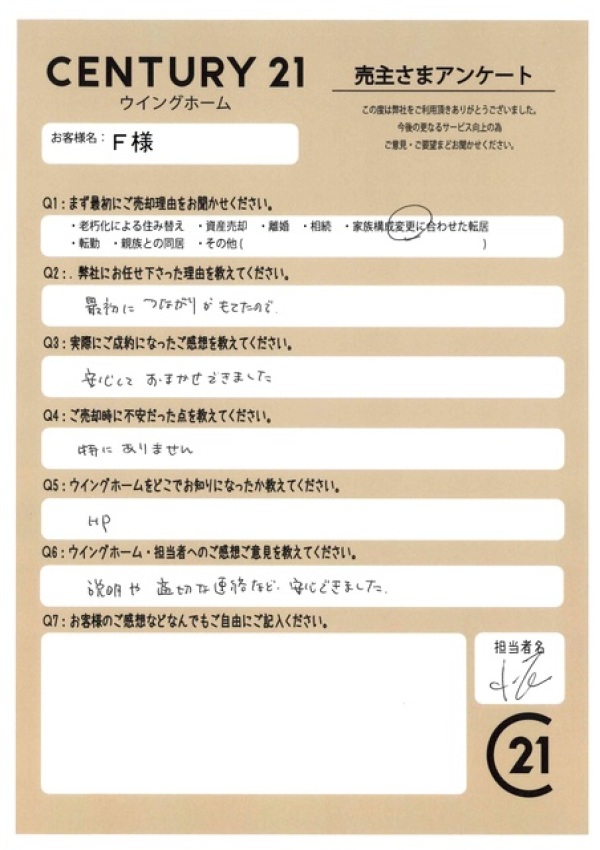 CENTURY 21
ウイングホーム
売主さまアンケート
この度は弊社をご利用頂きありがとうございました。
今後の更なるサービス向上の為
ご意見・ご要望をお聞かせください。
お客様名: F様
Q1:まず最初にご売却理由をお聞かせください。
・老朽化による住み替え ・資産売却 ・離婚 ・相続 ・家族構成変更に合わせた転居
・転勤 ・親族との同居 ・その他( )
Q2:. 弊社にお任せ下さった理由を教えてください。
最初に つながりがもてたので.
Q3:実際にご成約になったご感想を教えてください。
安心して おまかせできました
Q4:ご売却時に不安だった点を教えてください。
特に ありません
Q5:ウイングホームをどこでお知りになったか教えてください。
HP
Q6:ウイングホーム・担当者へのご感想ご意見を教えてください。
説明や 適切な連絡など、安心できました.
Q7:お客様のご感想などなんでもご自由にご記入ください。
担当者名
C21